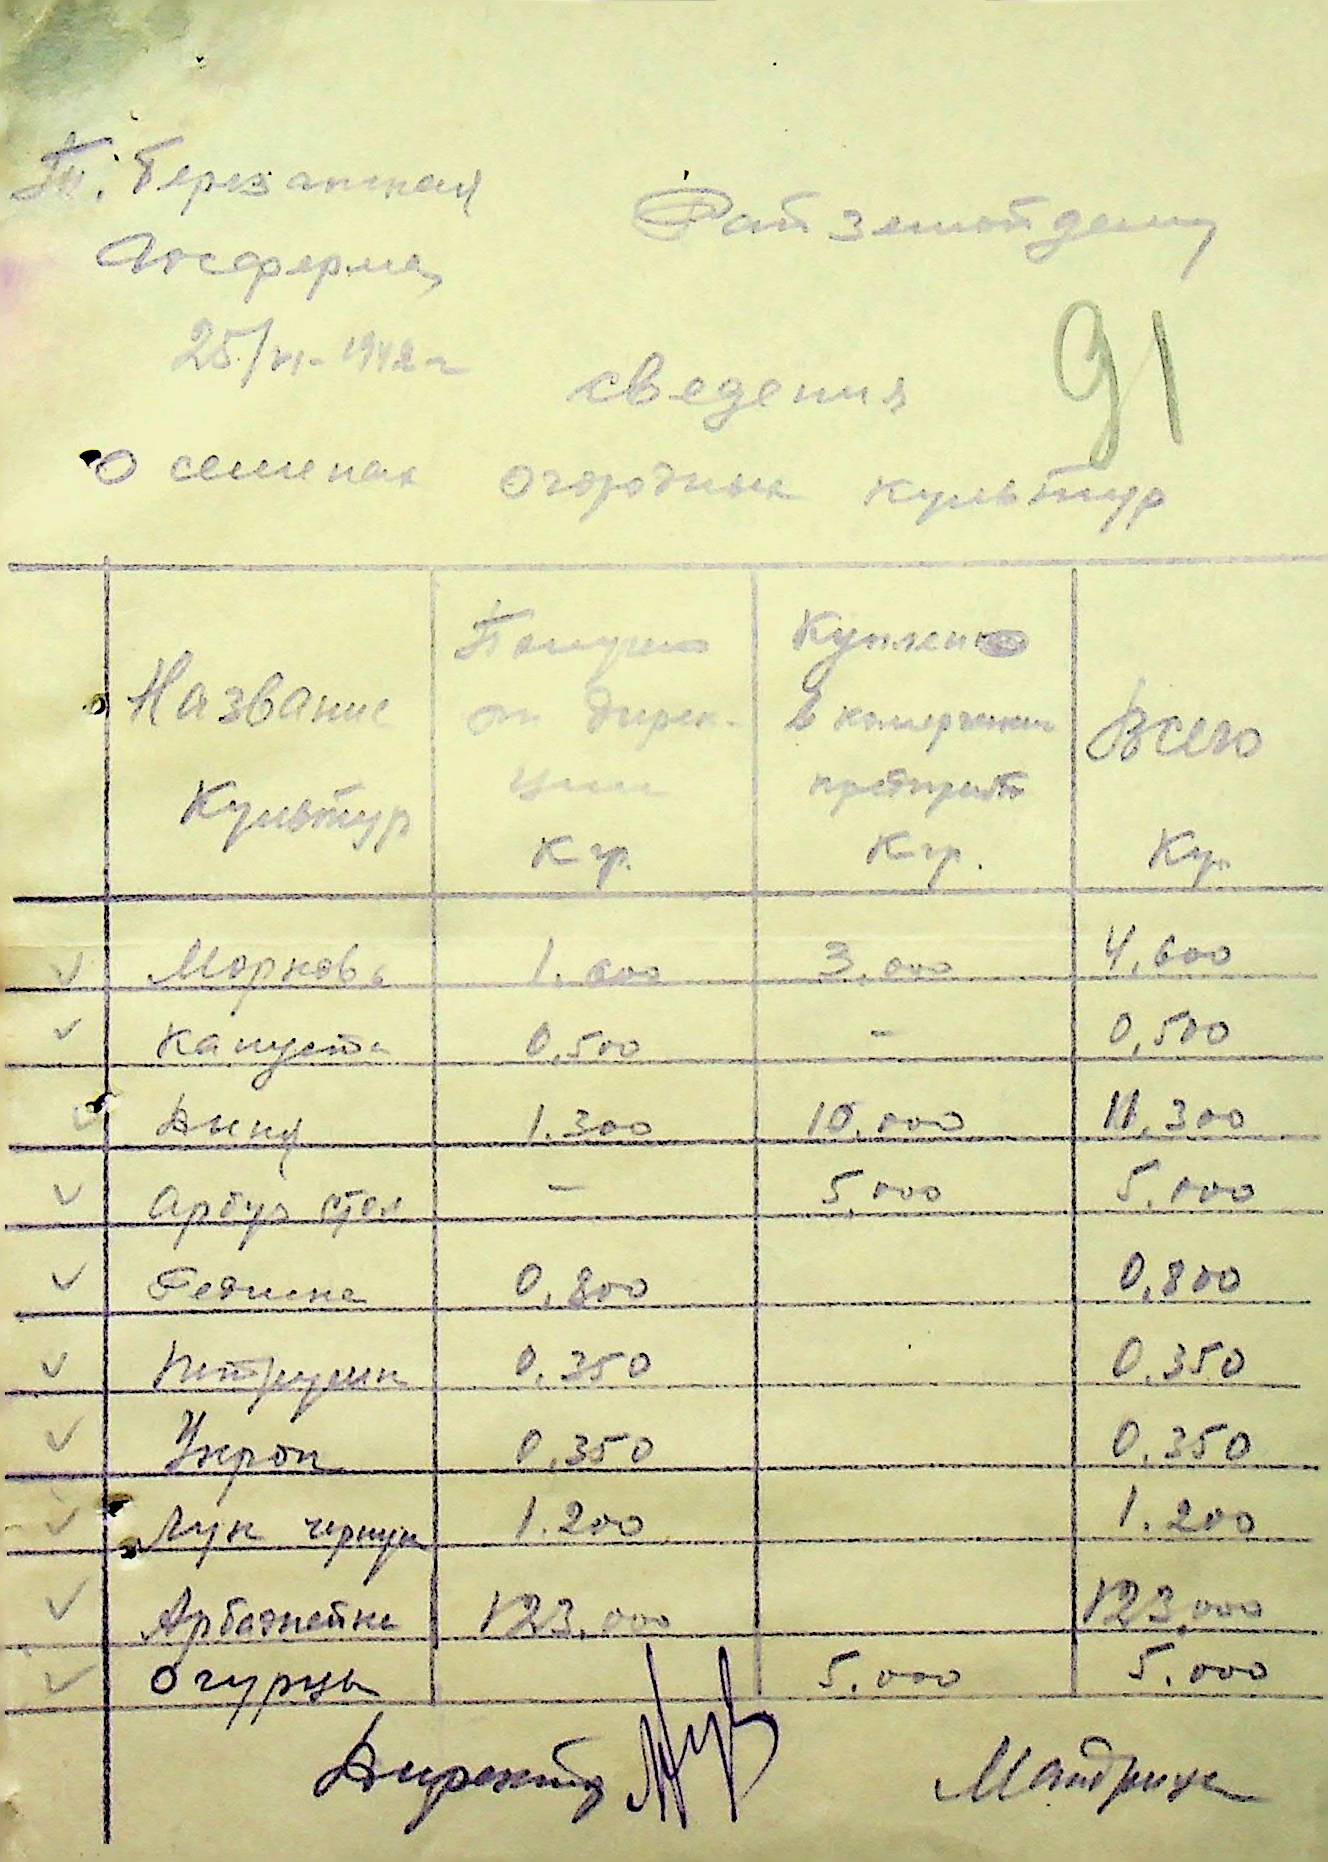 Березанская
Госферма
Райземотделу
25/VI-1942 г
91
сведения
о семенах огородных культур
Название Культур
Получено от дирек-ции Кгр.
Куплено в комерческих Кгр.
Всего Кгр.
Морковь 1.600 3.000 4.600
Капуста 0,500 - 0,500
Дыня 1.300 10.000 11.300
Арбуз стол - 5.000 5.000
Редиска 0,800 0,800
Петрушка 0.350 0.350
Укроп 0.350 0.350
Лук чернуш 1.200 1.200
123.000 123.000
Огурцы 5.000 5.000
Директор